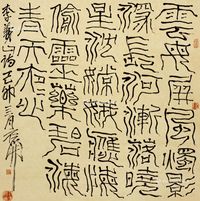 雲母屏風燭影
深長河漸落曉
星沈嫦娥應悔
偷靈藥碧海
青天夜々心
李義山詩己卯三月